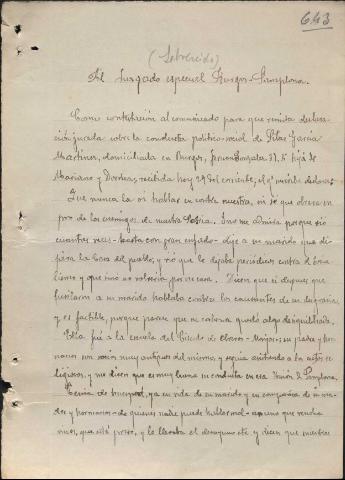 643
(Sobreseído)
Al Juzgado especial Burgos-Pamplona.
Como contestación al comunicado para que remita declara-
ción jurada sobre la conducta político-social de Pilar García
Martínez, domiciliada en Burgos, 31, 5º hija de
Mariano y Dorotea, recibida hoy 29 del corriente, el qe suscribe declara:
Que nunca la oí hablar en contra nuestra, ni sé que obrara en
pro de los enemigos de nuestra Patria. Eso me admira porque sin
cuantas veces - hasta con gran enfado - dije a su marido que de-
jara la Casa del pueblo, y vió que le dejaba periódicos contra el Socia-
lismo y que sino no volvería por su casa. Dicen que si después que
fusilaron a su marido hablaba contra los causantes de su desgracia,
y es factible, porque parece que su cabeza quedó algo desequilibrada.
Ella fué a la escuela del Círculo de Obreros su padre y her-
manos son socios muy antiguos del mismo, y seguía asistiendo a los actos re-
ligiosos, y me dicen que es muy buena su conducta en esa de Pamplona.
Tenía de huesped, ya en vida de su marido y en compañía de su ma-
dre y hermanos - de quienes nadie puede hablar mal - a uno que vendía
que está preso, y le llevaba el desayuno etc y dicen que mientras